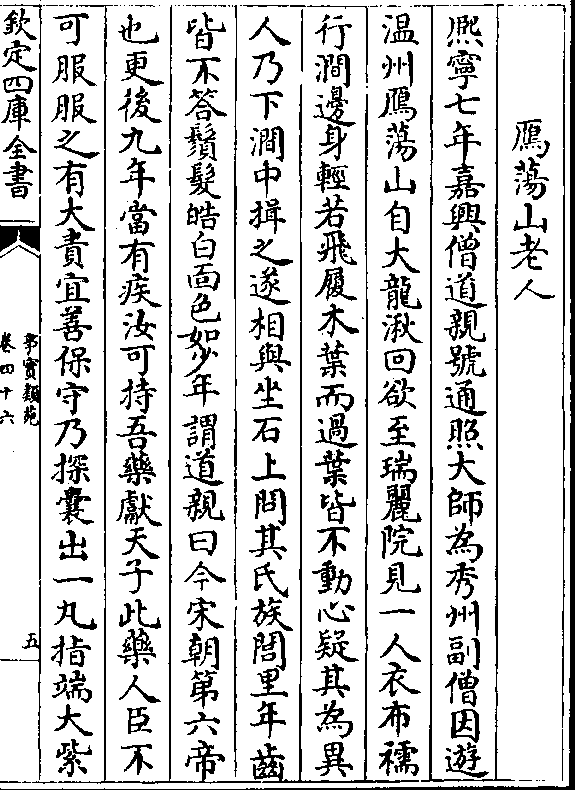 鴈蕩山老人
熈寧七年嘉興僧道親號通照大師為秀州副僧因遊
温州鴈蕩山自大龍湫回欲至瑞麗院見一人衣布襦
行澗邊身輕若飛履木葉而過葉皆不動心疑其為異
人乃下澗中揖之遂相與坐石上問其氏族閭里年齒
皆不答鬚髮皓白面色如少年謂道親曰今宋朝第六帝
也更後九年當有疾汝可持吾藥獻天子此藥人臣不
可服服之有大責宜善保守乃探囊出一丸指端大紫
欽定四庫全書
事實類苑
卷四十六
五